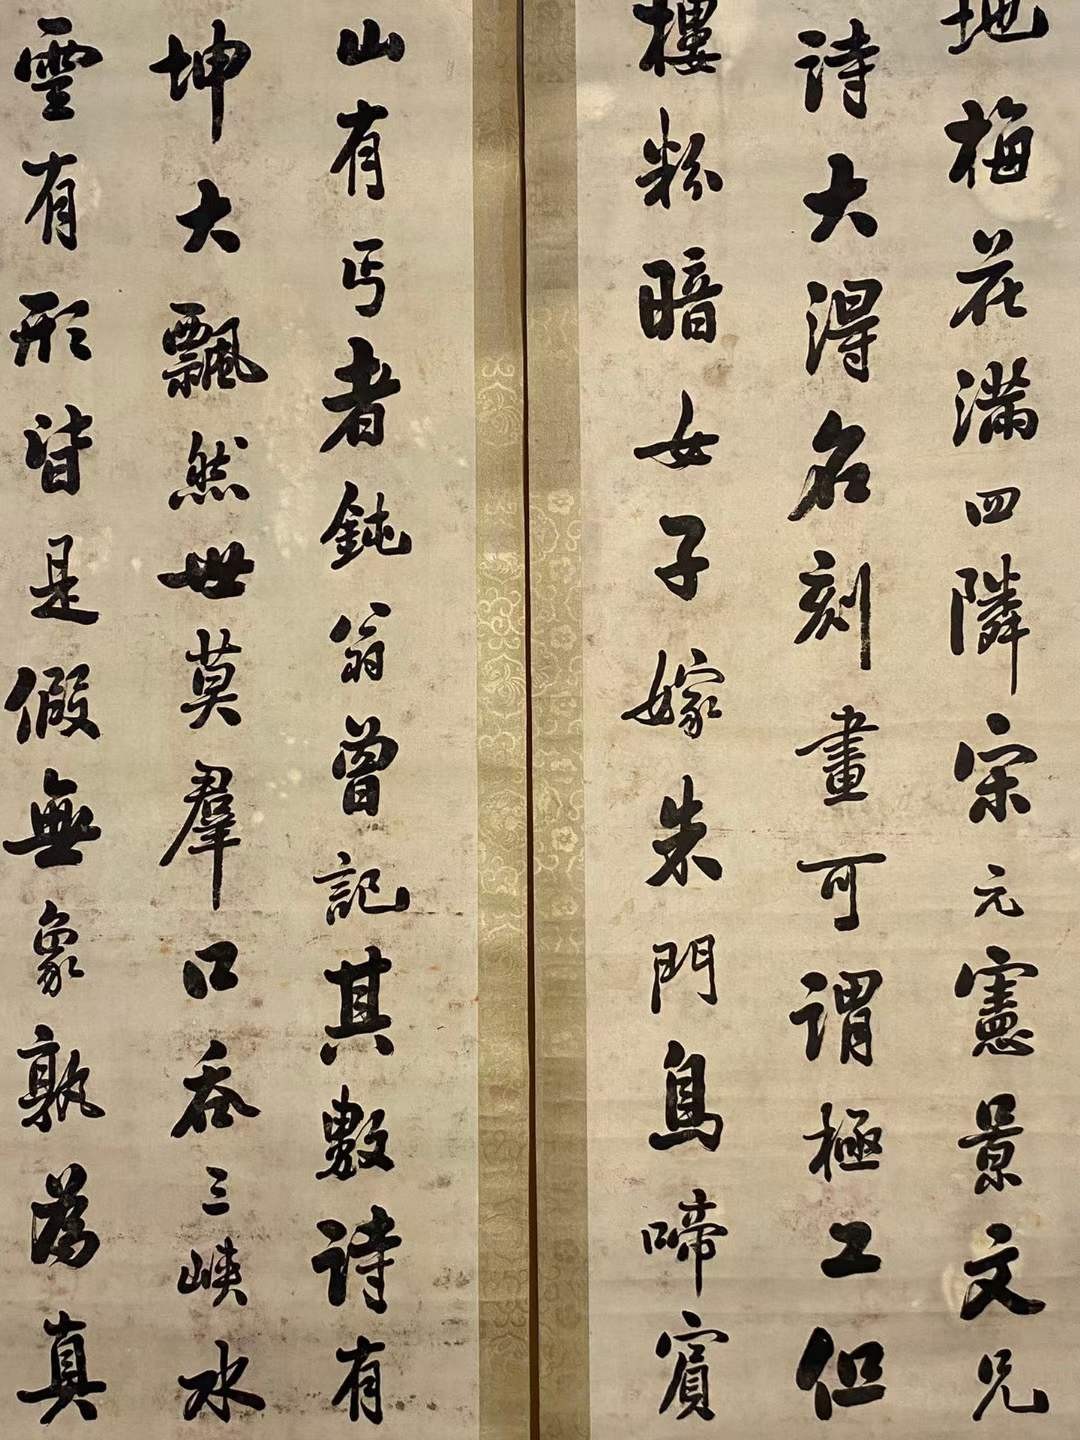 地梅花滿四隣宋元憲景文兄
詩大得名刻畫可謂極工但
樓粉暗女子嫁朱門鳥啼賓
山有丐者鈍翁曾記其數詩有
坤大飄然世莫羣口吞三峽水
雲有形皆是假無象孰為真